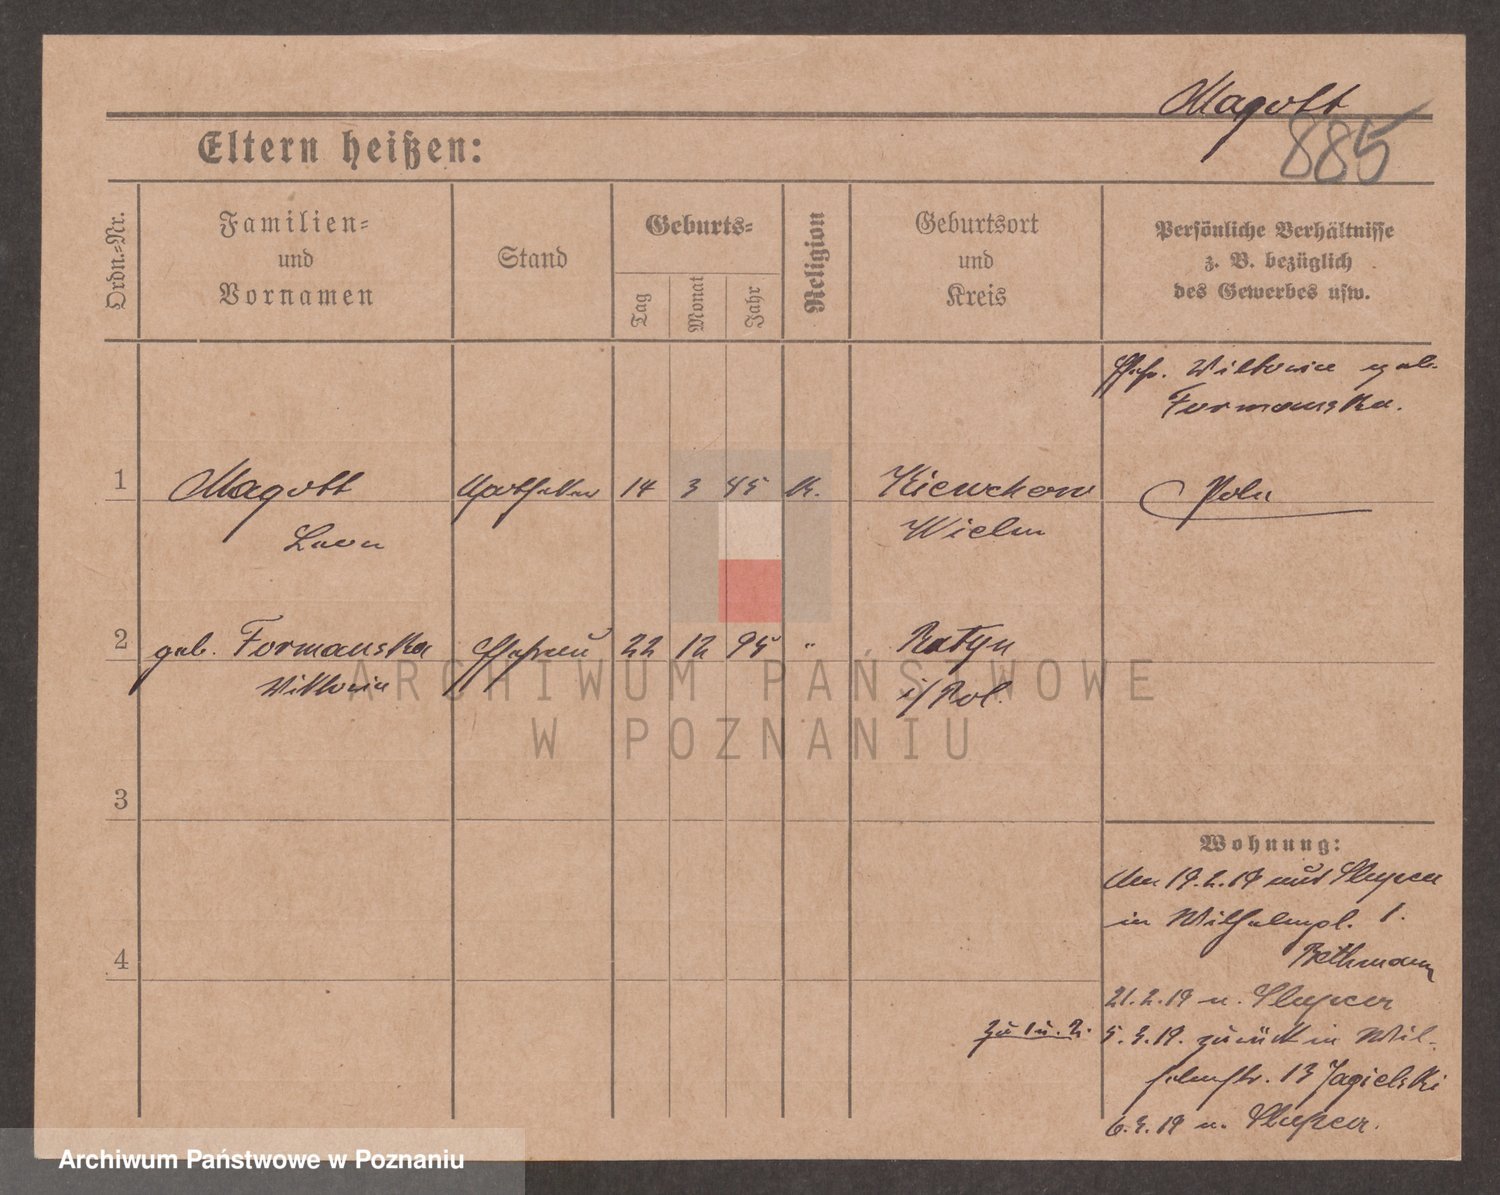 Magott
885
Eltern heißen:
Ordn.-Nr.
Familien-
und
Vornamen
Stand
Geburts-
Tag
Monat
Jahr
Religion
Geburtsort
und
Kreis
Persönliche Verhältnisse
z. B. bezüglich
des Gewerbes usw.
geb.
Formanska.
1 Magott Apotheker 14 3 K. Pole
Leon Wielun
2 geb. Formanska Ehefrau 22 12 95 " Ratyn
Viktoria i/Pol.
3
4
Wohnung:
Am 19.2.19 aus Slupca
in Wilhelmpl. 1.
Bethmann
21.2.19 n. Slupca
zu 1 u. 2. 5.3.19. zurück in Wil-
helmstr. 13 Jagielski
6.3.19 n. Slupca.
ARCHIWUM PAŃSTWOWE
W POZNANIU
Archiwum Państwowe w Poznaniu